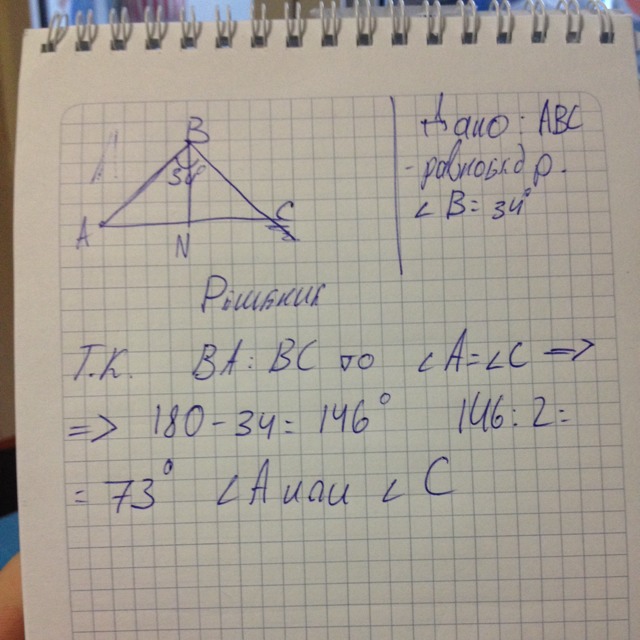 B
34
A
N
C
Дано: ABC
- равнобедр.
∠ B = 34°
Решение
Т.К. BA = BC то ∠A=∠C =>
=> 180-34= 146° 146:2=
= 73° ∠A или ∠ C